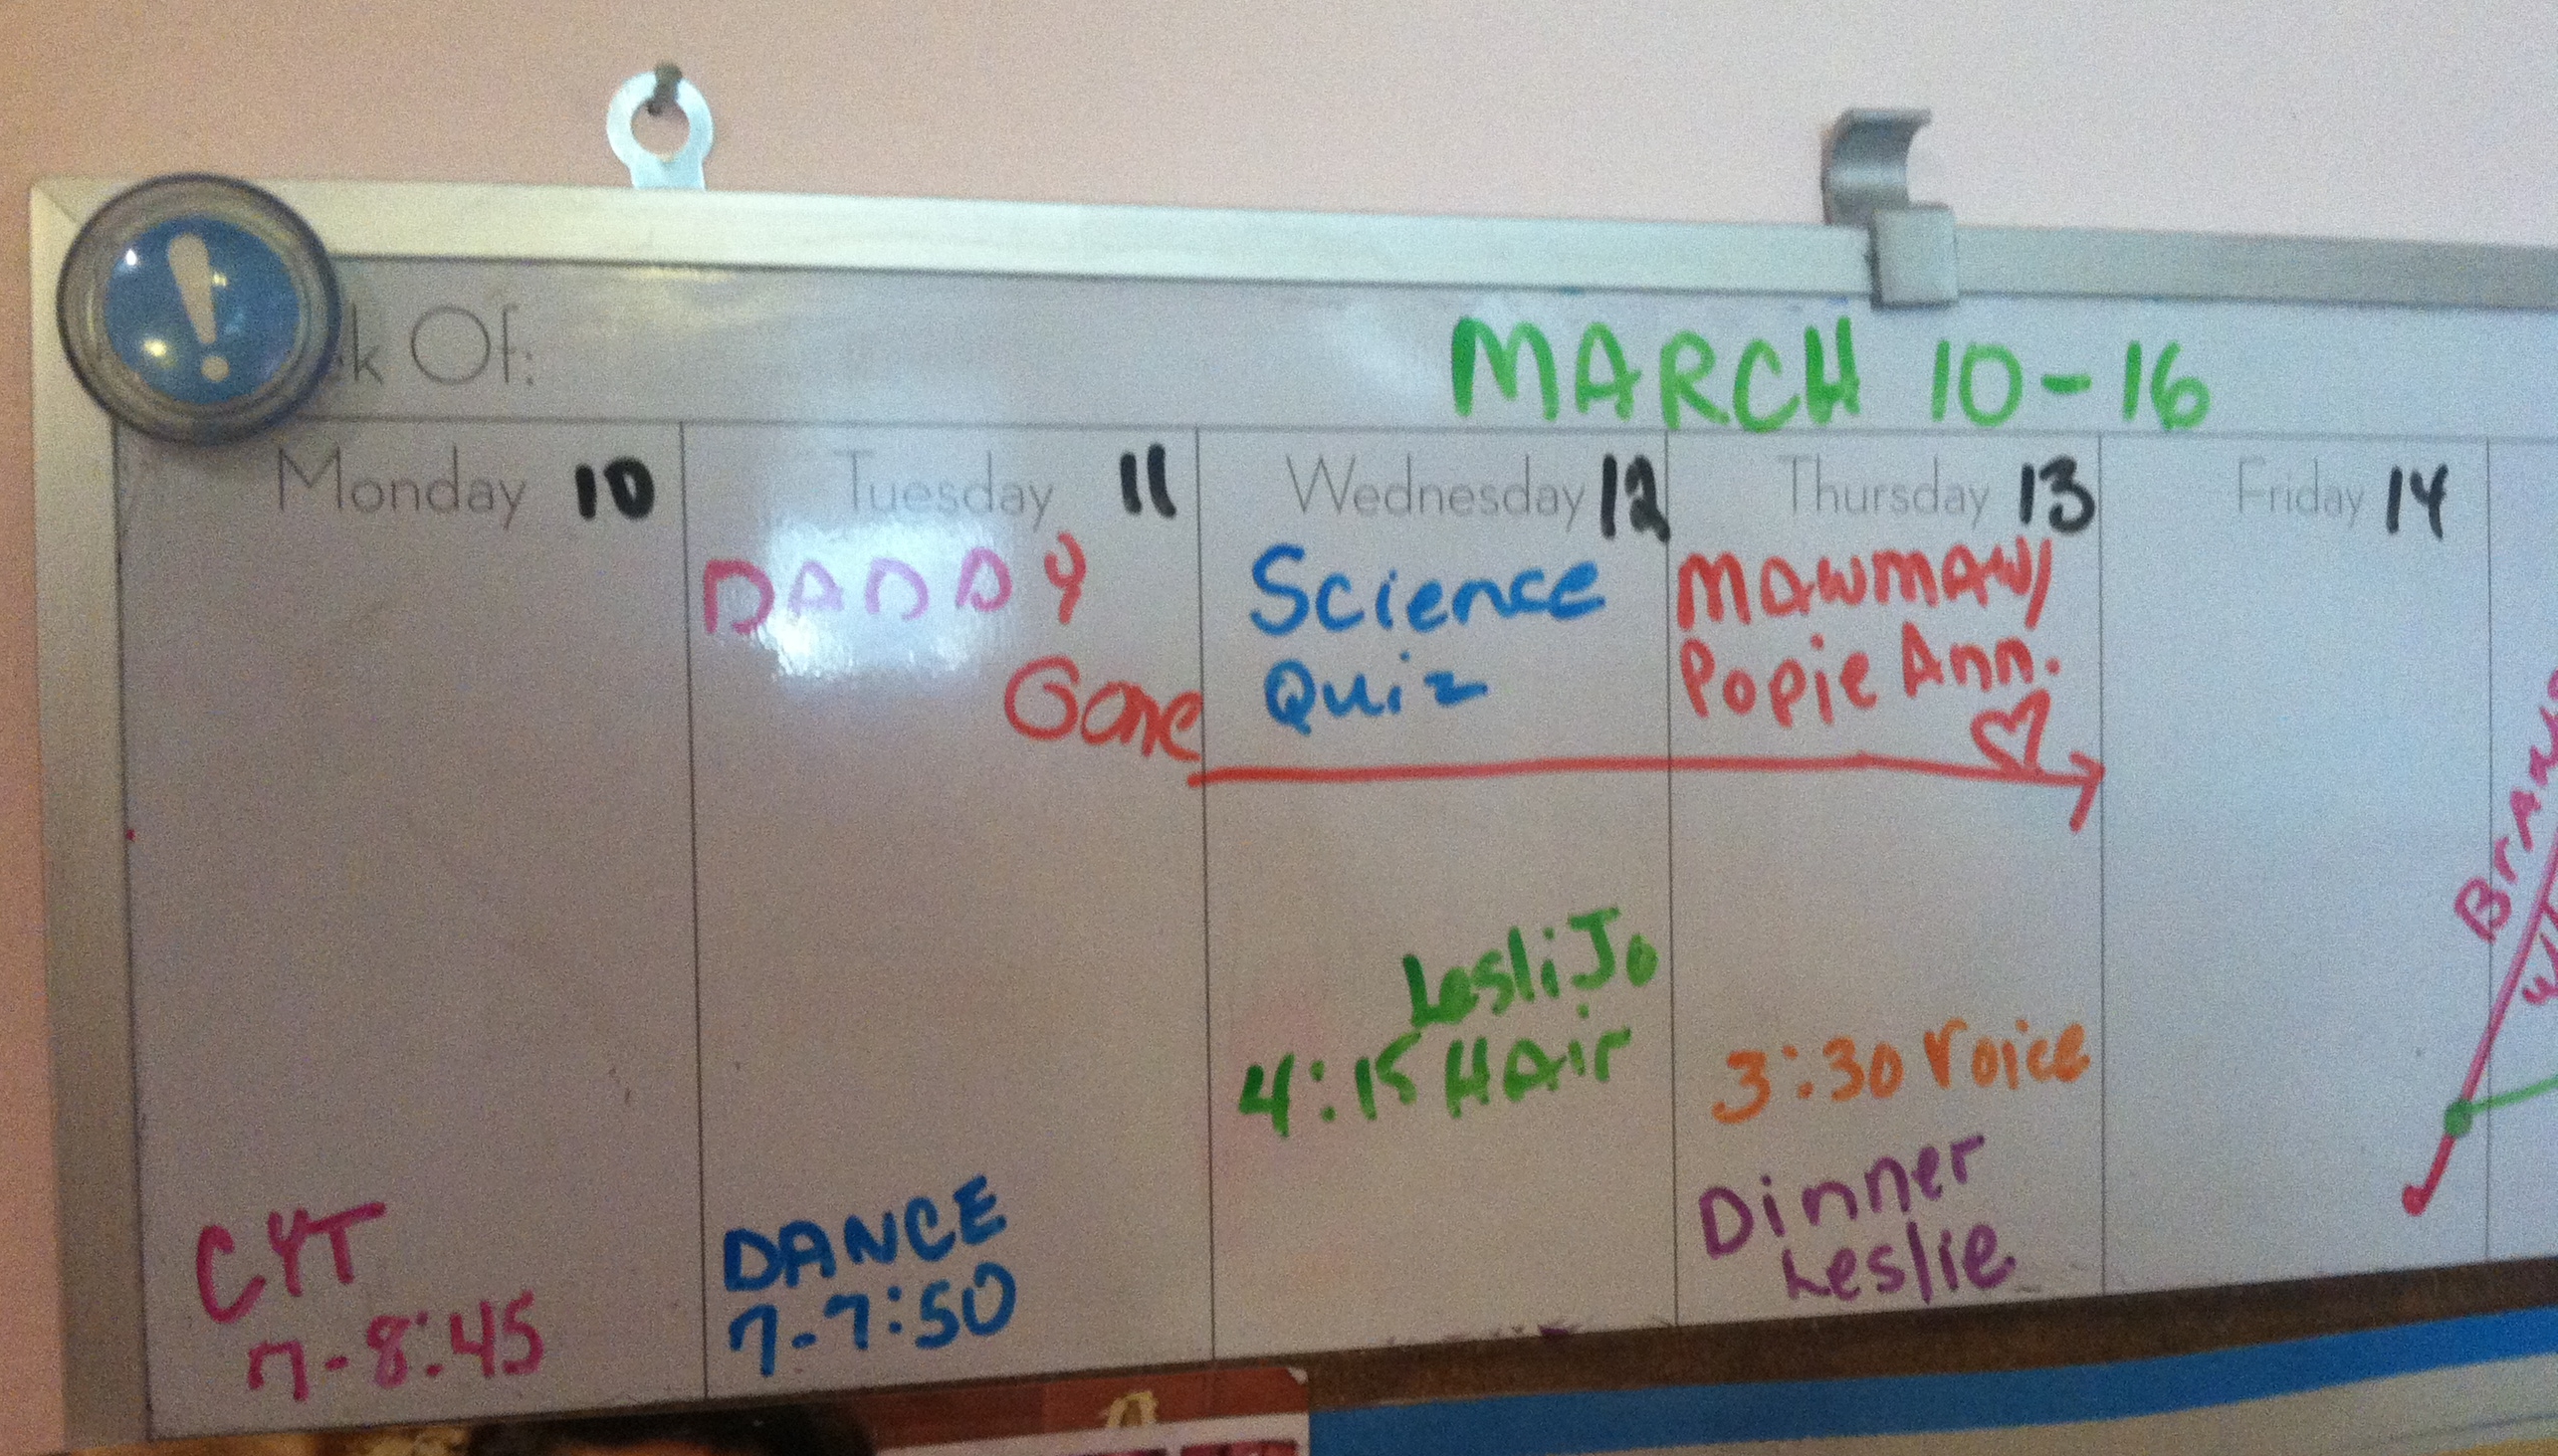 k Of:
MARCH 10-16
Monday 10
Tuesday 11
Wednesday 12
Thursday 13
Friday 14
DADDY
Gone
Science
Quiz
MAWMAW/
Popie Ann.
LesliJo
4:15 HAir
3:30 Voice
Dinner
Leslie
CYT
7-8:45
DANCE
7-7:50